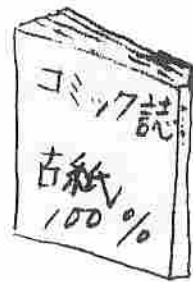 コミック誌
古紙
100%